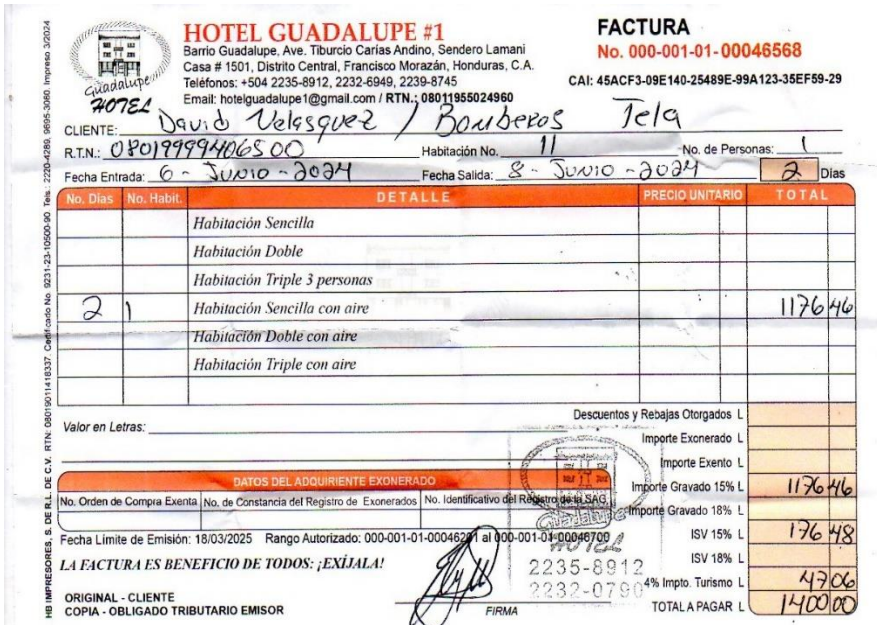 HOTEL GUADALUPE #1
Barrio Guadalupe, Ave. Tiburcio Carías Andino, Sendero Lamani
Casa # 1501, Distrito Central, Francisco Morazán, Honduras, C.A.
Teléfonos: +504 2235-8912, 2232-6949, 2239-8745
Email: hotelguadalupe1@gmail.com / RTN.: 08011955024960
Guadalupe
HOTEL
FACTURA
No. 000-001-01-00046568
CAI: 45ACF3-09E140-25489E-99A123-35EF59-29
CLIENTE: David Velasquez / Bomberos Tela
R.T.N.: 08019999406500 Habitación No. 11 No. de Personas: 1
Fecha Entrada: 6 - Junio - 2024 Fecha Salida: 8 - Junio - 2024 2 Días
No. Días No. Habit. DETALLE PRECIO UNITARIO TOTAL
Habitación Sencilla
Habitación Doble
Habitación Triple 3 personas
2 1 Habitación Sencilla con aire 1176 46
Habitación Doble con aire
Habitación Triple con aire
Valor en Letras:
Descuentos y Rebajas Otorgados L
Importe Exonerado L
Importe Exento L
Importe Gravado 15% L 1176 46
Importe Gravado 18% L
ISV 15% L 176 48
ISV 18% L
4% Impto. Turismo L 47 06
TOTAL A PAGAR L 1400 00
DATOS DEL ADQUIRIENTE EXONERADO
No. Orden de Compra Exenta No. de Constancia del Registro de Exonerados No. Identificativo del Registro de la SAG
Fecha Límite de Emisión: 18/03/2025 Rango Autorizado: 000-001-01-00046201 al 000-001-01-00046700
LA FACTURA ES BENEFICIO DE TODOS: ¡EXÍJALA!
ORIGINAL - CLIENTE
COPIA - OBLIGADO TRIBUTARIO EMISOR
FIRMA
Guadalupe
HOTEL
2235-8912
2232-0790
HB IMPRESORES, S. DE R.L. DE C.V. RTN: 08019011418337. Certificado No. 9231-23-10500-90 Tels.: 2220-4289, 9695-3060. Impreso 3/2024